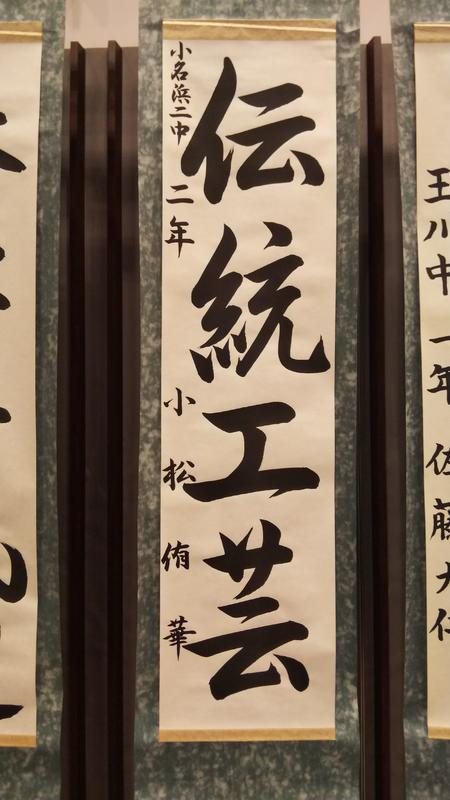 伝統工芸
小名浜二中 二年 小松侑華
玉川中 一年 佐藤大仁